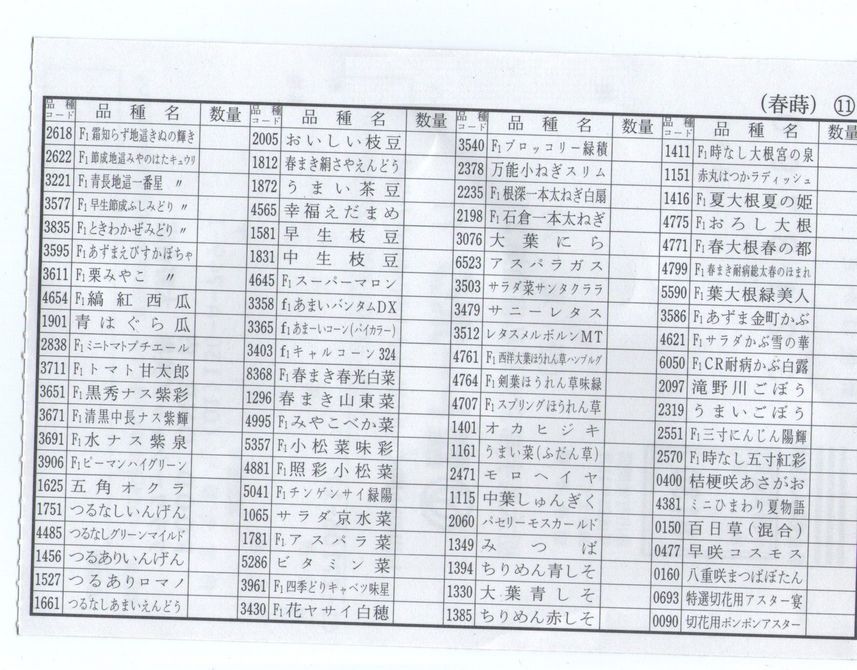 （春蒔） ⑪
品種コード 品種名 数量
2618 F1霜知らず地這きぬの輝き
2622 F1節成地這みやのはたキュウリ
3221 F1青長地這一番星 〃
3577 F1早生節成ふしみどり 〃
3835 F1ときわかぜみどり 〃
3595 F1あずまえびすかぼちゃ
3611 F1栗みやこ 〃
4654 F1縞紅西瓜
1901 青はぐら瓜
2838 F1ミニトマトプチエール
3711 F1トマト甘太郎
3651 F1黒秀ナス紫彩
3671 F1清黒中長ナス紫輝
3691 F1水ナス紫泉
3906 F1ピーマンハイグリーン
1625 五角オクラ
1751 つるなしいんげん
4485 つるなしグリーンマイルド
1456 つるありいんげん
1527 つるありロマノ
1661 つるなしあまいえんどう
品種コード 品種名 数量
2005 おいしい枝豆
1812 春まき絹さやえんどう
1872 うまい茶豆
4565 幸福えだまめ
1581 早生枝豆
1831 中生枝豆
4645 F1スーパーマロン
3358 f1あまいバンタムDX
3365 f1あまーいコーン(バイカラー)
3403 f1キャルコーン324
8368 F1春まき春光白菜
1296 春まき山東菜
4995 F1みやこべか菜
5357 F1小松菜味彩
4881 F1照彩小松菜
5041 F1チンゲンサイ緑陽
1065 サラダ京水菜
1781 F1アスパラ菜
5286 ビタミン菜
3961 F1四季どりキャベツ味星
3430 F1花ヤサイ白穂
品種コード 品種名 数量
3540 F1ブロッコリー緑積
2378 万能小ねぎスリム
2235 F1根深一本太ねぎ白扇
2198 F1石倉一本太ねぎ
3076 大葉にら
6523 アスパラガス
3503 サラダ菜サンタクララ
3479 サニーレタス
3512 レタスメルボルンMT
4761 F1西洋大葉ほうれん草ハンブルグ
4764 F1剣葉ほうれん草味緑
4707 F1スプリングほうれん草
1401 オカヒジキ
1161 うまい菜(ふだん草)
2471 モロヘイヤ
1115 中葉しゅんぎく
2060 パセリーモスカールド
1349 みつば
1394 ちりめん青しそ
1330 大葉青しそ
1385 ちりめん赤しそ
品種コード 品種名 数量
1411 F1時なし大根宮の泉
1151 赤丸はつかラディッシュ
1416 F1夏大根夏の姫
4775 F1おろし大根
4771 F1春大根春の都
4799 F1春まき耐病総太春のほまれ
5590 F1葉大根緑美人
3586 F1あずま金町かぶ
4621 F1サラダかぶ雪の華
6050 F1CR耐病かぶ白露
2097 滝野川ごぼう
2319 うまいごぼう
2551 F1三寸にんじん陽輝
2570 F1時なし五寸紅彩
0400 桔梗咲あさがお
4381 ミニひまわり夏物語
0150 百日草(混合)
0477 早咲コスモス
0160 八重咲まつばぼたん
0693 特選切花用アスター宴
0090 切花用ポンポンアスター